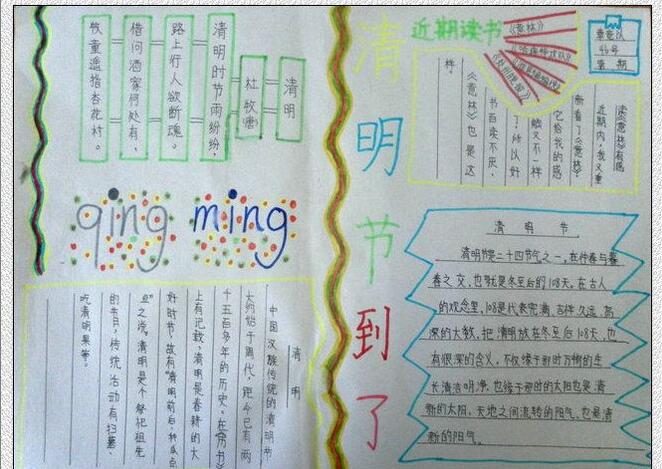 清明
杜牧(唐)
清明时节雨纷纷,
路上行人欲断魂。
借问酒家何处有,
牧童遥指杏花村。
qing ming
清明
中国汉族传统的清明节
大约始于周代,距今已有两
千五百多年的历史。在《周书》
上有记载,清明是春耕的大
好时节,故有"清明前后,种瓜点
豆"之说。清明是个祭祀祖先
的节日,传统活动有扫墓、
吃清明果等。
清明节到了
近期读书
《意林》
读《意林》有感
近期内,我又重
新看了《意林》
它给我的感
触又不一样
了!所以好
书百读不厌,
《意林》也是这
样
清明节
清明是二十四节气之一,在仲春与暮
春之交,也就是冬至后的108天。在古人
的观念里,108是代表完满、吉祥、久远、高
深的大数。把清明放在冬至后108天,也
有很深的含义,不仅缘于那时万物的生
长清洁明净,也缘于那时的太阳也是清
新的太阳,天地之间流转的阳气,也是清
新的阳气。